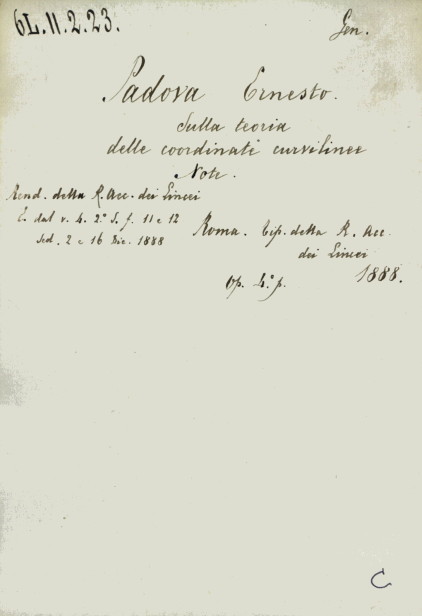 6L.11.2.23.
Gen.
Padova Ernesto.
Sulla teoria
delle coordinate curvilinee
Note.
Rend. della R. Acc. dei Lincei
E. dal v. 4. 2° S. f. 11 e 12
Sed. 2 e 16 Dic. 1888
Roma. Tip. della R. Acc.
dei Lincei
1888.
Op. 4.° p.
C